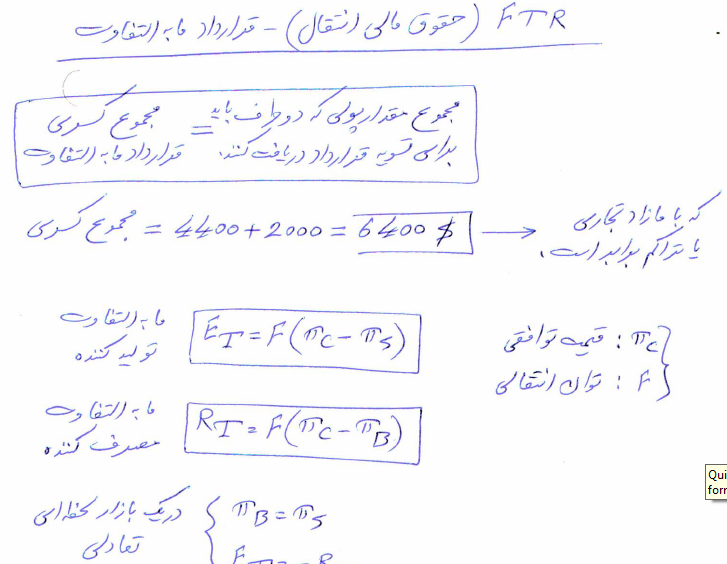 FTR (حقوق مالی انتقال) - قرارداد مابه التفاوت
مجموع مقدار پولی که دو طرف باید برای تسویه قرارداد دریافت کنند. = مجموع کسری قرارداد مابه التفاوت
مجموع کسری = 4400+2000 = 6400 $ → که با مازاد تجاری یا تراکم برابر است.
مابه التفاوت تولید کننده E_T = F(π_C - π_S)
π_C : قیمت توافقی
F : توان انتقالی
مابه التفاوت مصرف کننده R_T = F(π_C - π_B)
در یک بازار لحظه ای تعادلی { π_B = π_S
Qui
for